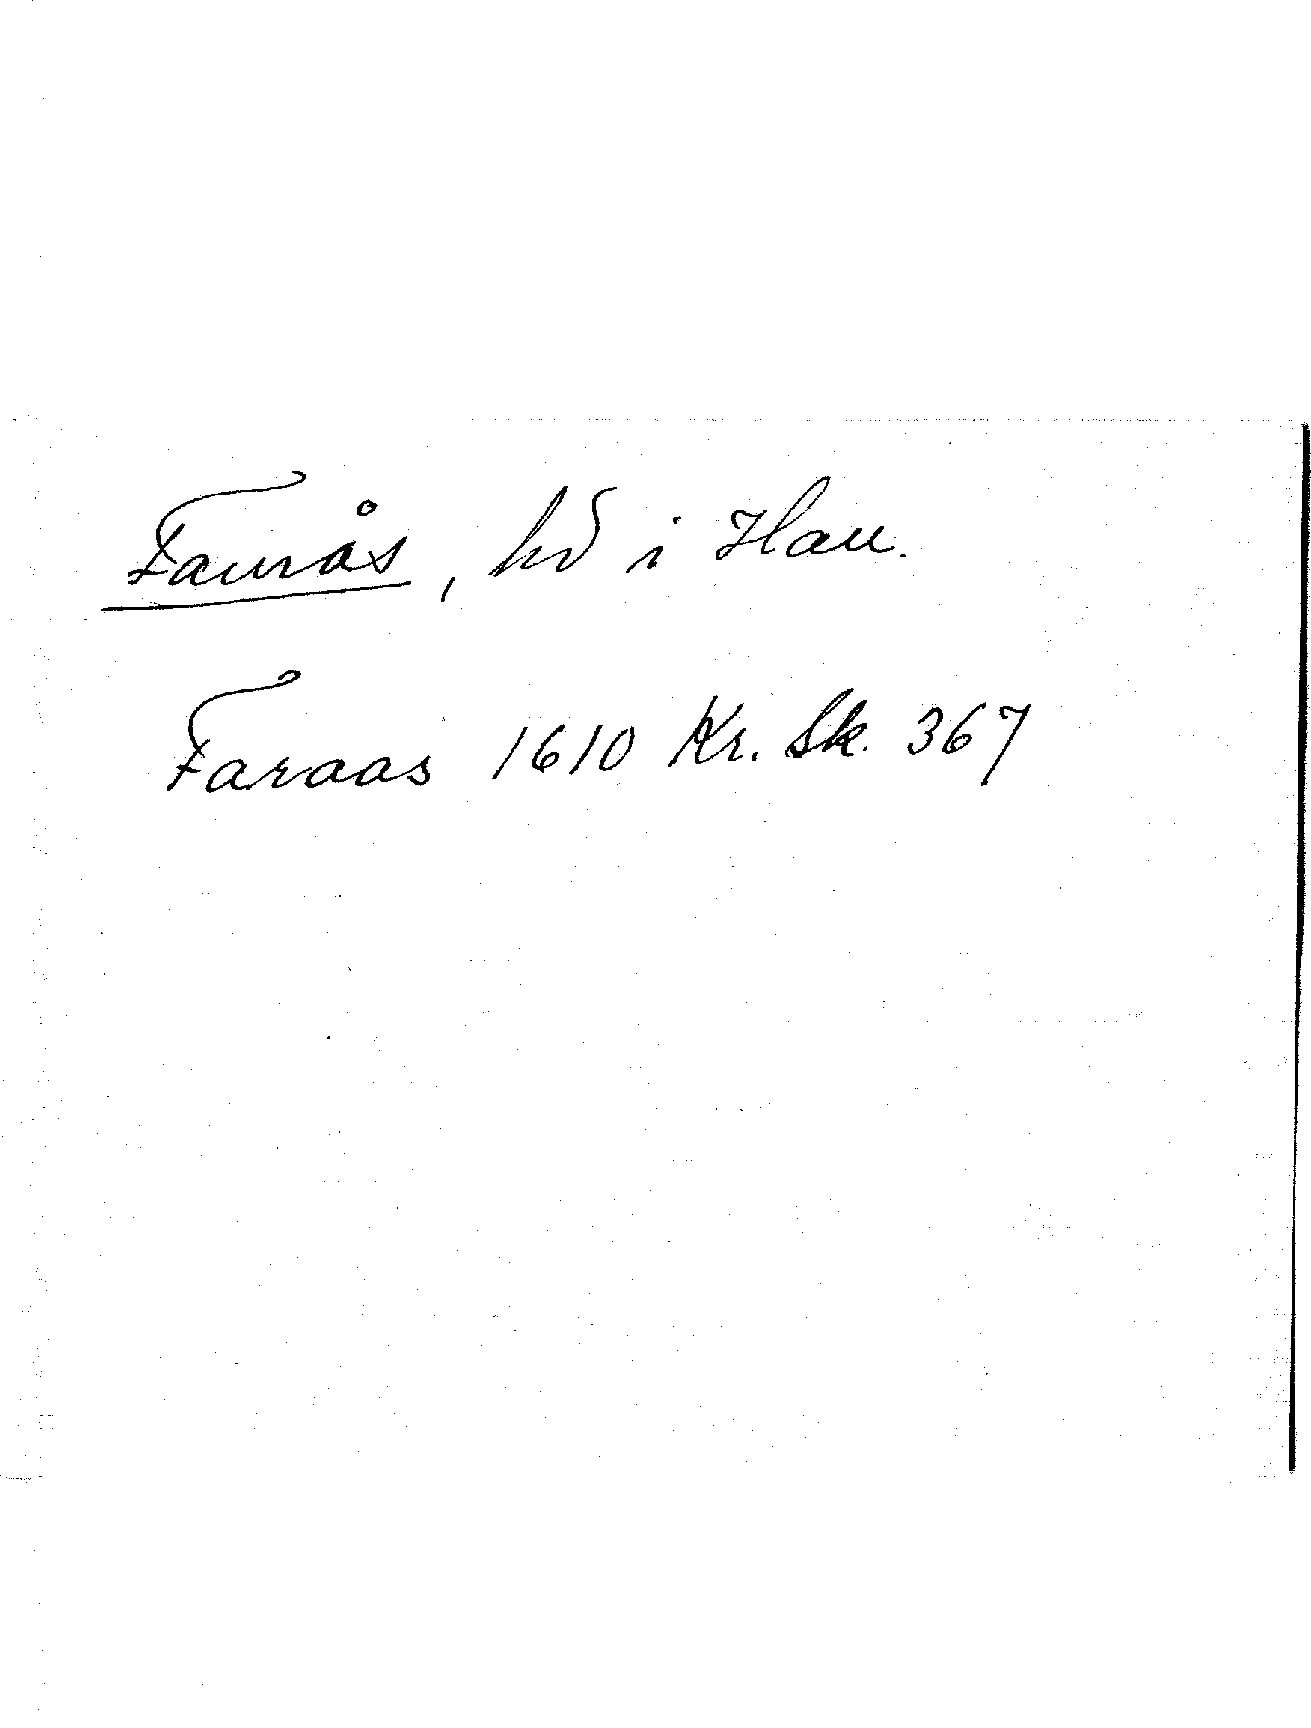 Faurås, hd i Hau.
Faraas 1610 Kr. Sk. 367